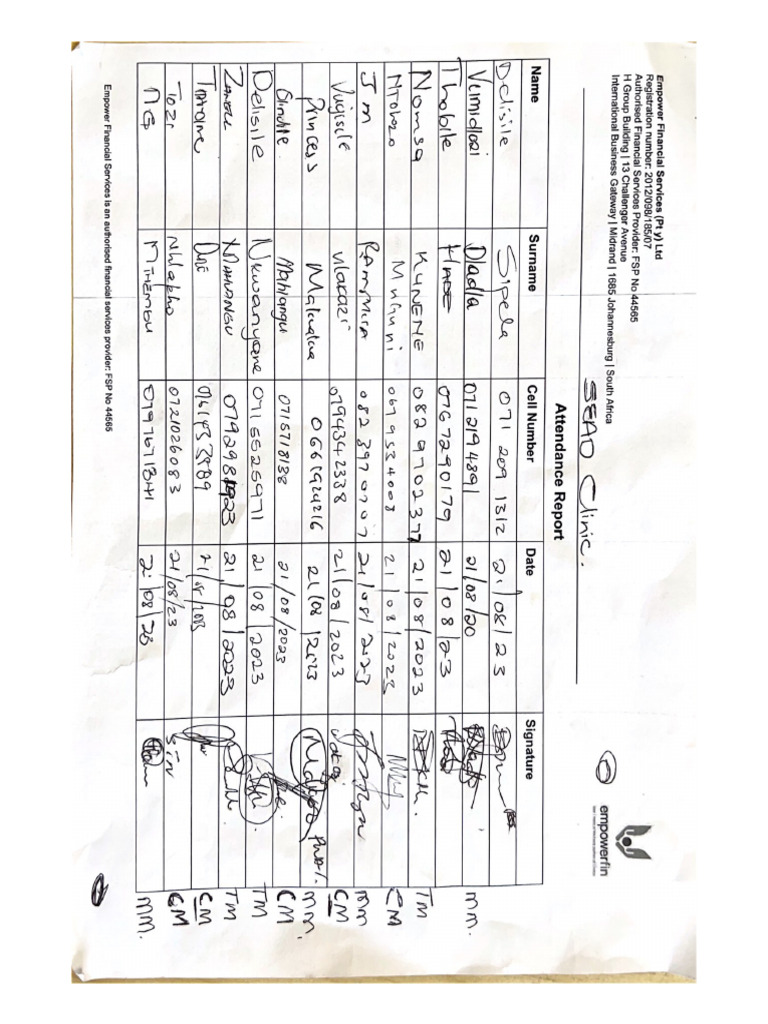 Empower Financial Services (Pty) Ltd
Registration number: 2012/098/185/07
Authorised Financial Services Provider: FSP No 44565
H Group Building | 13 Challenger Avenue
International Business Gateway | Midrand | 1685 Johannesburg | South Africa
empowerfin
SEAD Clinic.
Attendance Report
Name Surname Cell Number Date Signature
Delisile Sipela 071 209 1312 21/08/23
Vumidlozi Dladla 0712194891 21/08/20 MM.
Thobile 0767290179 21/08/23
Nomsa KUNENE 0829702377 21/08/2023 TM
Mnguni 0679534008 21/08/2023 CM
JM 0823970707 21/08/2023 MM
Vusisile Vilakazi 0794342338 21/08/2023 CM
Princess Makukua 0661924216 21/08/2023 MM.
Mahlangu 0715718138 21/08/2023 CM
Delisile Nkwanyane 0715525971 21/08/2023 TM
MAHLANGU 0792981923 21/08/2023 TM
0614333589 21/08/2023 CM
Tozi Nhlapho 0721026083 21/08/23 CM
NG MTHEMBU 0797671344 21/08/23 MM.
Empower Financial Services is an authorised financial services provider: FSP No 44565